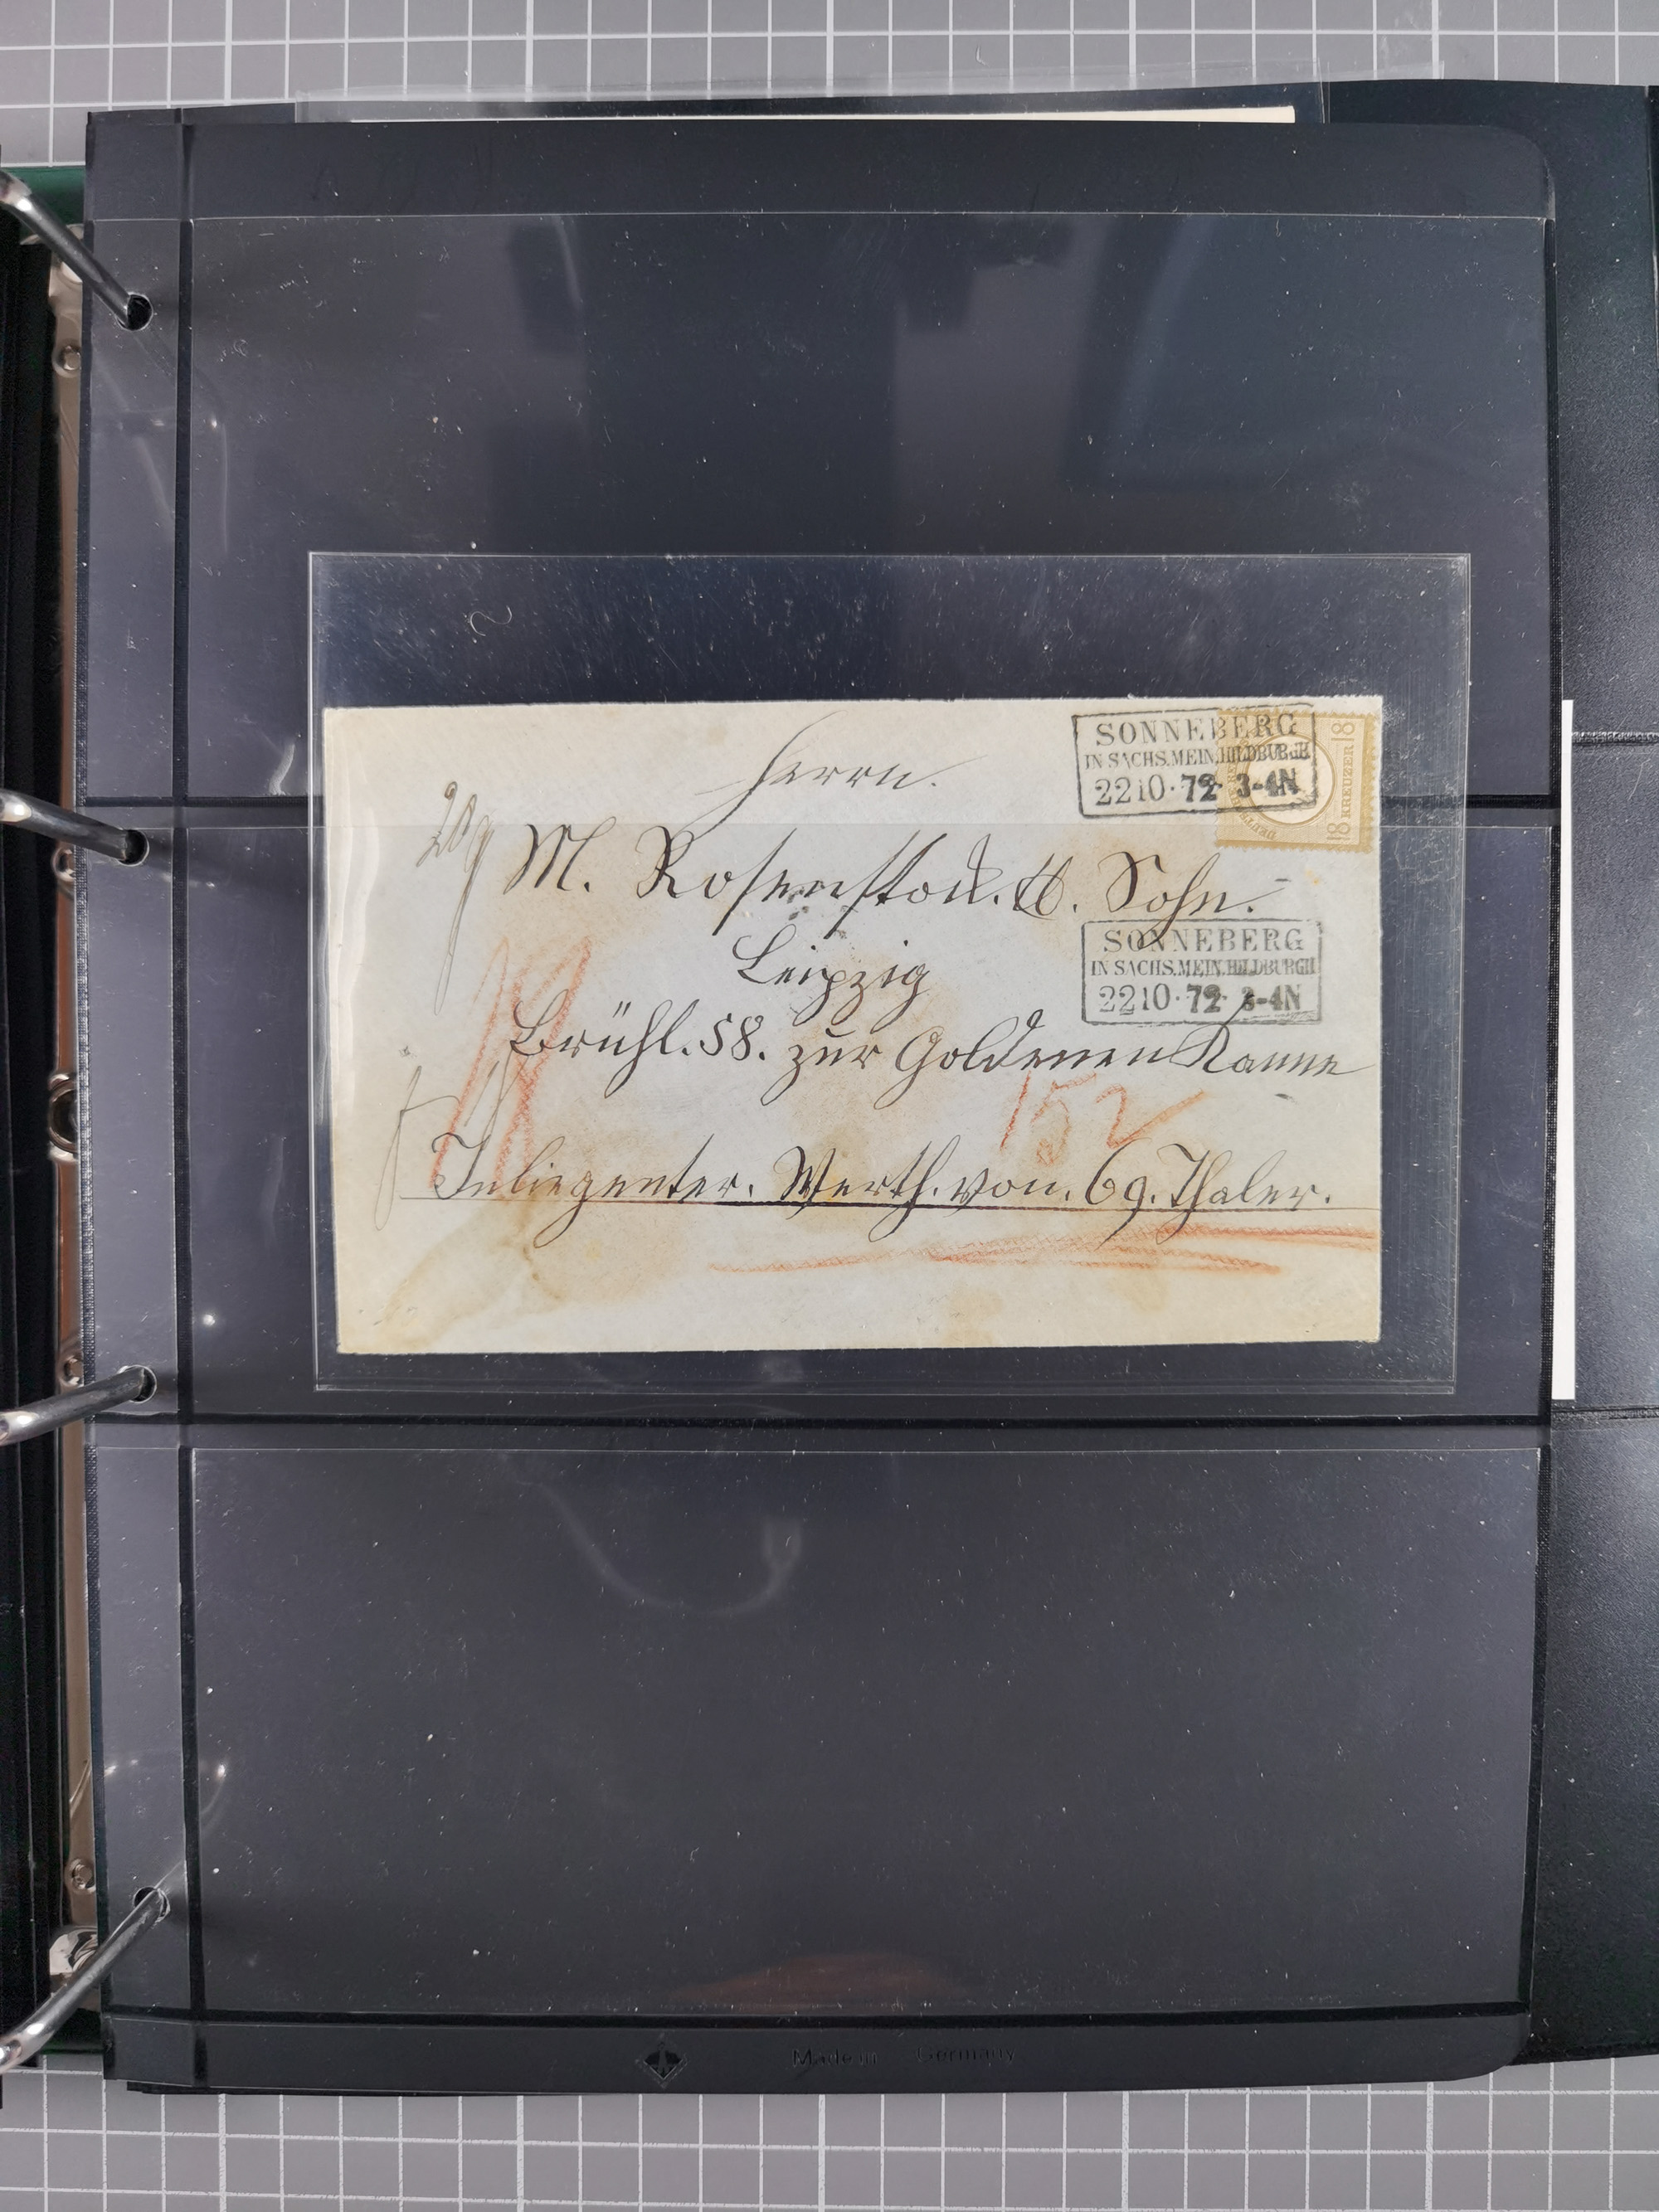 Herrn.
SONNEBERG
IN SACHS.MEIN.HILDBURGH
22 10 · 72 · 3-4N
18 KREUZER 18
M. Rosenstock. & Sohn.
Leipzig
SONNEBERG
IN SACHS.MEIN.HILDBURGH
22 10 · 72 · 3-4N
Brühl. 58. zur Goldenen Kanne
152
Inliegenter. Werth. von. 69. Thaler.
Made in Germany